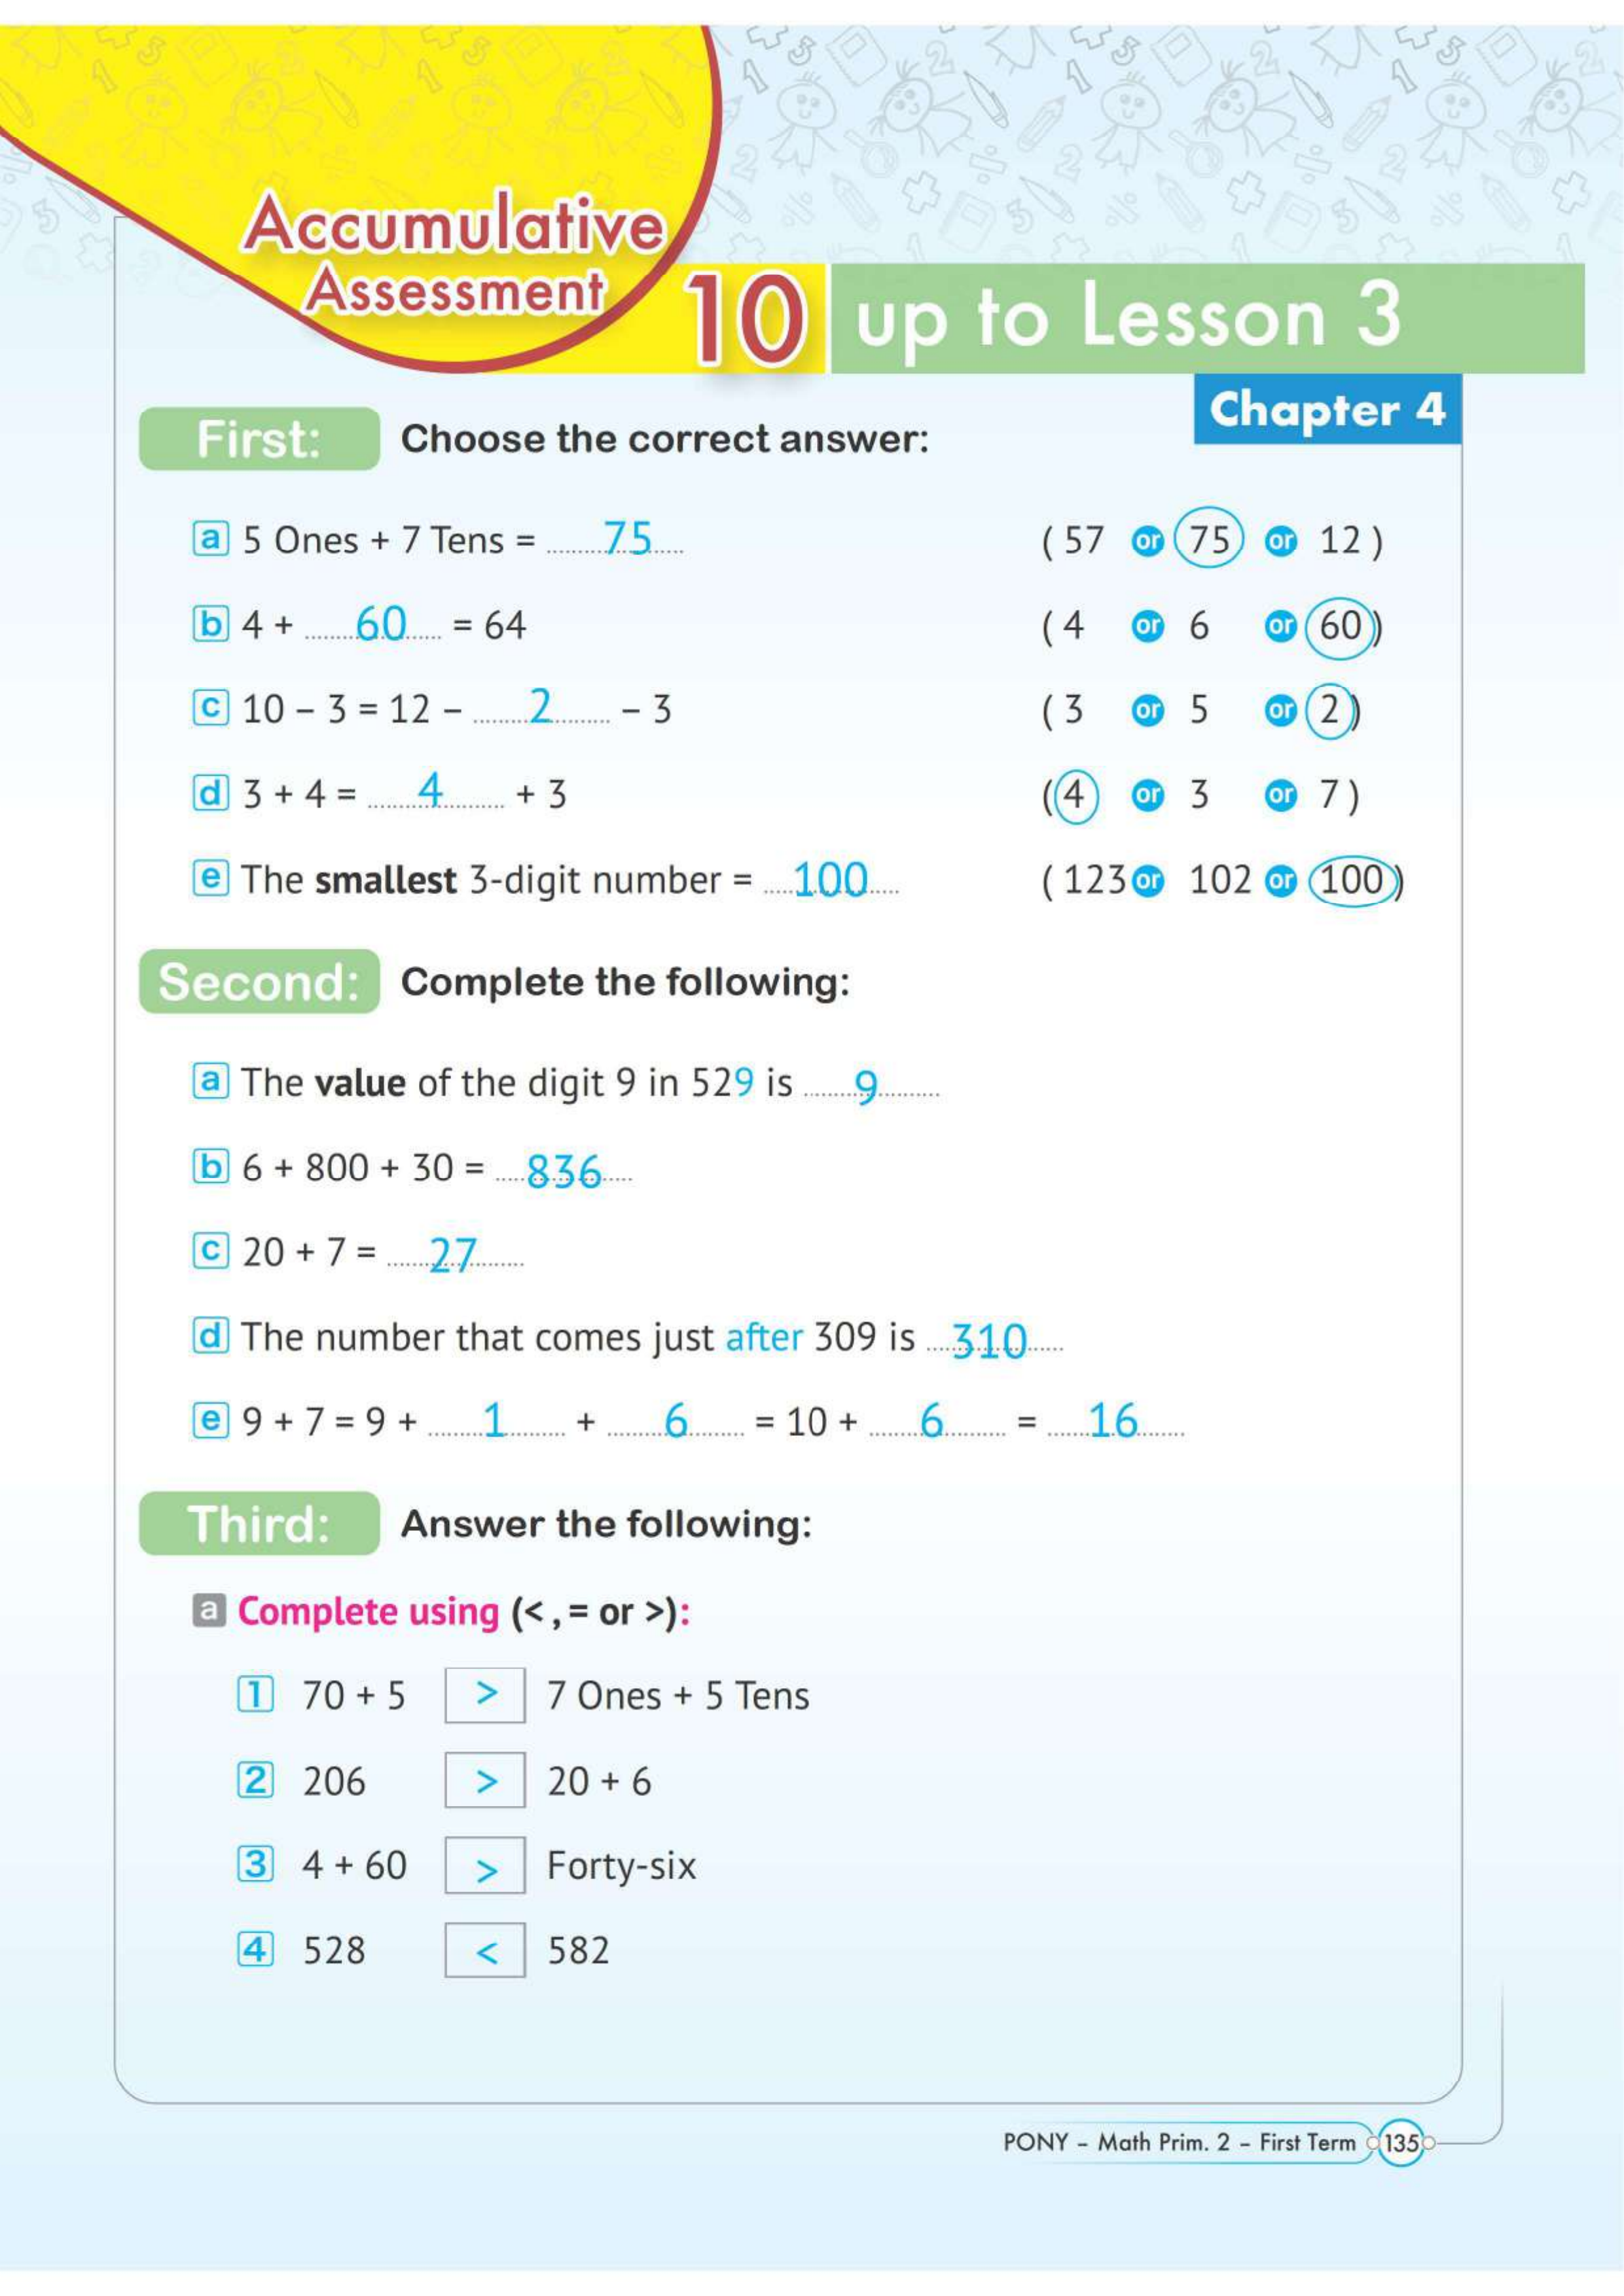 Accumulative
Assessment 10 up to Lesson 3
Chapter 4
First: Choose the correct answer:
a 5 Ones + 7 Tens = 75 ( 57 or 75 or 12 )
b 4 + 60 = 64 ( 4 or 6 or 60 )
c 10 – 3 = 12 – 2 – 3 ( 3 or 5 or 2 )
d 3 + 4 = 4 + 3 ( 4 or 3 or 7 )
e The smallest 3-digit number = 100 ( 123 or 102 or 100 )
Second: Complete the following:
a The value of the digit 9 in 529 is 9
b 6 + 800 + 30 = 836
c 20 + 7 = 27
d The number that comes just after 309 is 310
e 9 + 7 = 9 + 1 + 6 = 10 + 6 = 16
Third: Answer the following:
a Complete using (< , = or >):
1 70 + 5 > 7 Ones + 5 Tens
2 206 > 20 + 6
3 4 + 60 > Forty-six
4 528 < 582
PONY – Math Prim. 2 – First Term 135